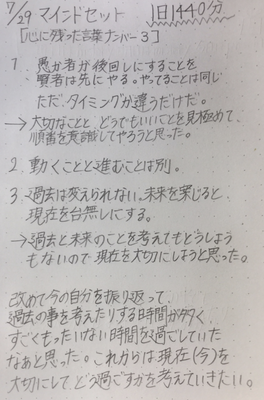 7/29 マインドセット 1日1440分
[心に残った言葉ナンバー3]
1. 愚か者が後回しにすることを
賢者は先にやる。やってることは同じ
ただ、タイミングが違うだけだ。
→大切なことと、どうでもいいことを見極めて、
順番を意識してやろうと思った。
2. 動くことと進むことは別。
3. 過去は変えられない。未来を案じると、
現在を台無しにする。
→過去と未来のことを考えてもどうしよう
もないので現在を大切にしようと思った。
改めて今の自分を振り返って、
過去の事を考えたりする時間が多く、
すごくもったいない時間を過ごしていた
なぁと思った。これからは現在(今)を
大切にしてどう過ごすかを考えていきたい。